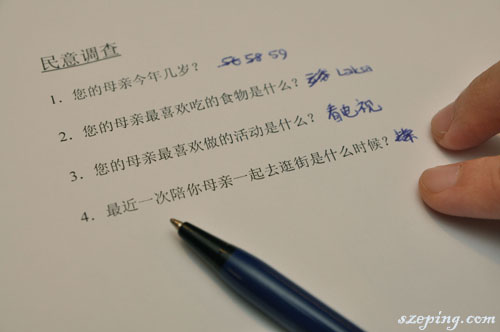 民意调查
1. 您的母亲今年几岁? 56 58 59
2. 您的母亲最喜欢吃的食物是什么? Laksa
3. 您的母亲最喜欢做的活动是什么? 看电视
4. 最近一次陪你母亲一起去逛街是什么时候?
szeping.com